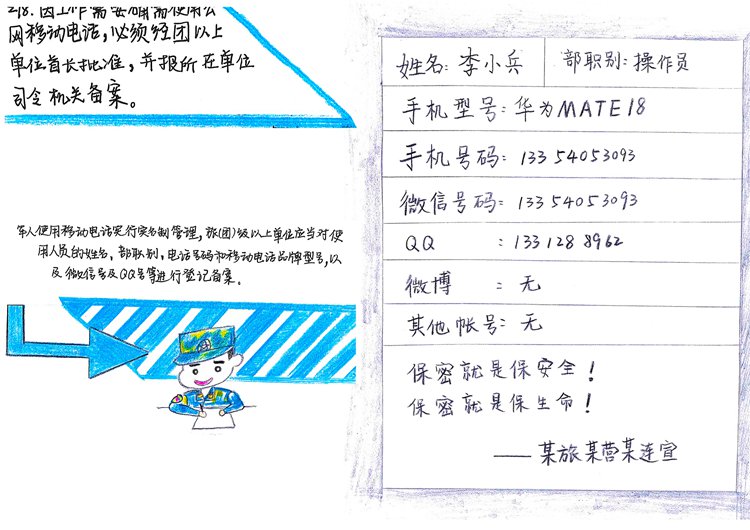 218. 因工作需要确需使用公
网移动电话，必须经团以上
单位首长批准，并报所在单位
司令机关备案。
军人使用移动电话实行实名制管理，旅(团)级以上单位应当对使
用人员的姓名，部职别，电话号码和移动电话品牌型号，以
及微信号及QQ号等进行登记备案。
姓名：李小兵 部职别：操作员
手机型号：华为MATE18
手机号码：133 54053093
微信号码：133 54053093
QQ ：133128 8962
微博 ：无
其他帐号：无
保密就是保安全！
保密就是保生命！
——某旅某营某连宣